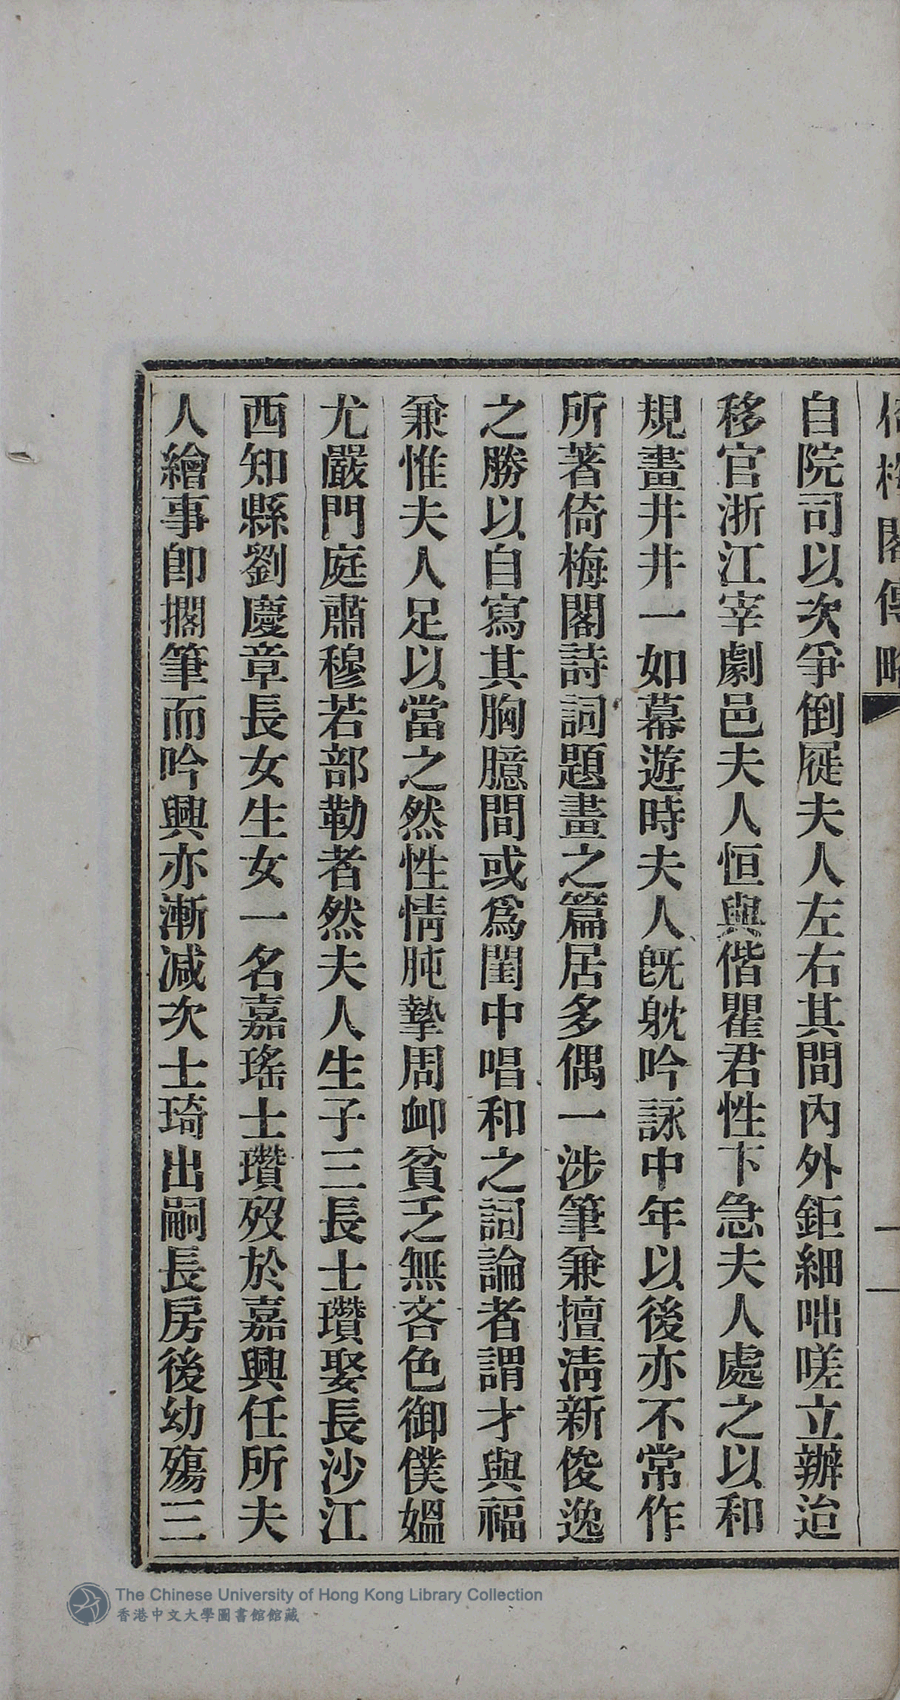 倚梅閣傳略
一
自院司以次爭倒屣夫人左右其間內外鉅細咄嗟立辦迨
移官浙江宰劇邑夫人恒與偕瞿君性卞急夫人處之以和
規畫井井一如幕遊時夫人旣躭吟詠中年以後亦不常作
所著倚梅閣詩詞題畫之篇居多偶一涉筆兼擅淸新俊逸
之勝以自寫其胸臆間或爲閨中唱和之詞論者謂才與福
兼惟夫人足以當之然性情肫摯周卹貧乏無吝色御僕媼
尤嚴門庭肅穆若部勒者然夫人生子三長士瓚娶長沙江
西知縣劉慶章長女生女一名嘉瑤士瓚歿於嘉興任所夫
人繪事卽擱筆而吟興亦漸減次士琦出嗣長房後幼殤三
The Chinese University of Hong Kong Library Collection
香港中文大學圖書館館藏